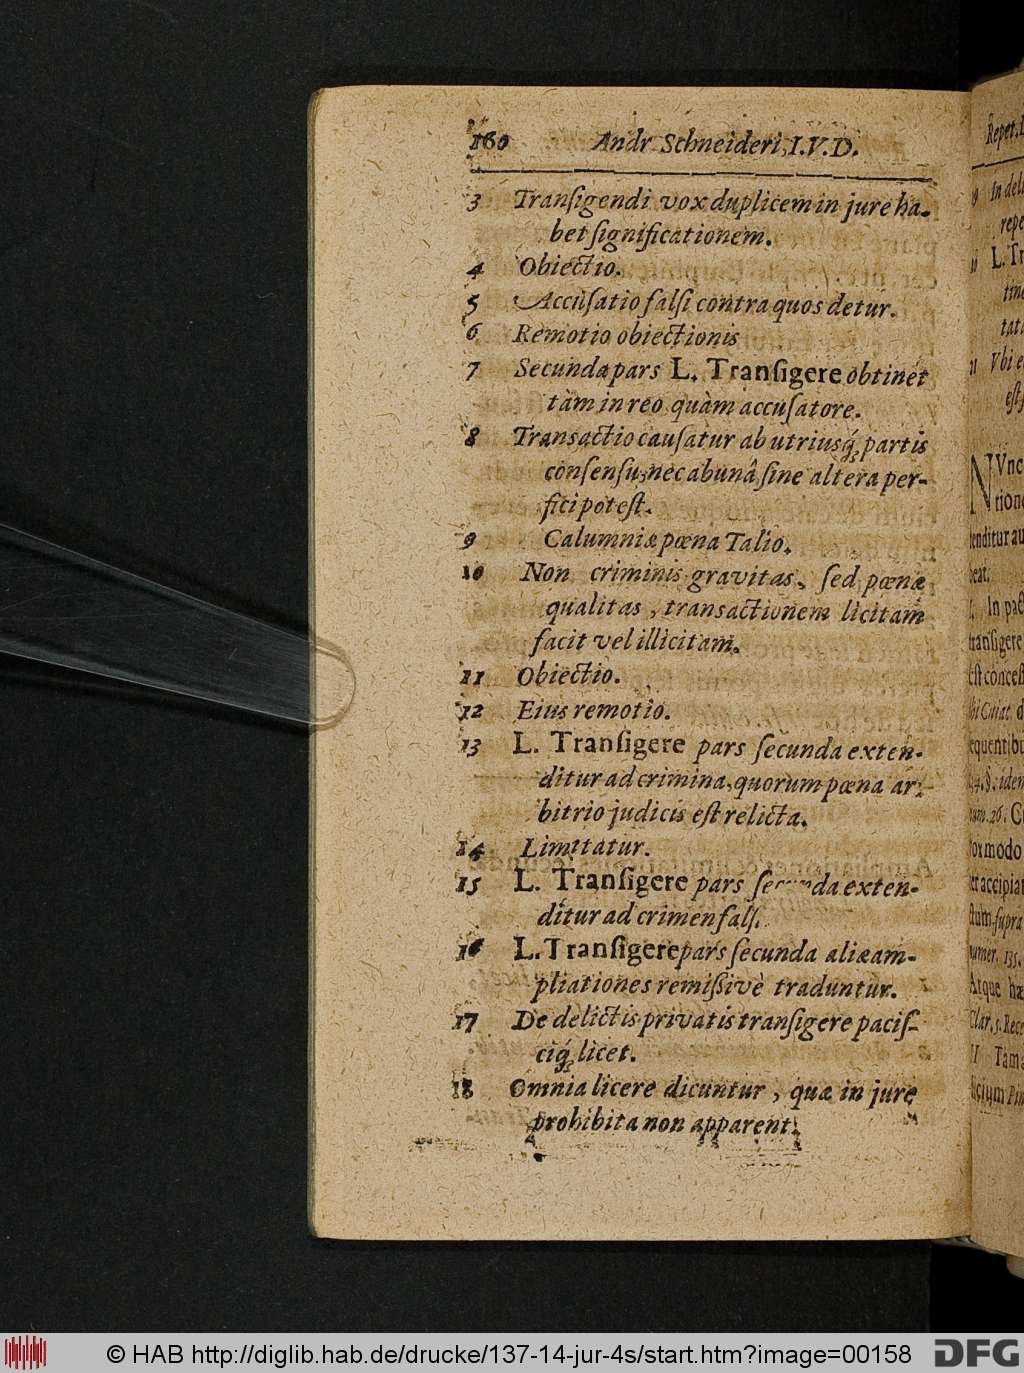 160 Andr Schneideri, I.V.D.
3 Tranſigendi vox duplicem in jure ha-
bet ſignificationem.
4 Obiectio.
5 Accuſatio falſi contra quos detur.
6 Remotio obiectionis
7 Secunda pars L. Tranſigere obtinet
tàm in reo quàm accuſatore.
8 Transactio cauſatur ab utriusq́; partis
conſenſu, nec ab unâ ſine altera per-
fici poteſt.
9 Calumniæ pœna Talio.
10 Non criminis gravitas, ſed pœnæ
qualitas, transactionem licitam
facit vel illicitam.
11 Obiectio.
12 Eius remotio.
13 L. Tranſigere pars ſecunda exten-
ditur ad crimina, quorum pœna ar-
bitrio judicis eſt relicta.
14 Limitatur.
15 L. Tranſigere pars ſecunda exten-
ditur ad crimen falſi.
16 L. Tranſigere pars ſecunda aliæ am-
pliationes remiſſivè traduntur.
17 De delictis privatis tranſigere paciſ-
ciq́; licet.
18 Omnia licere dicuntur, quæ in jure
prohibita non apparent.
Repet.
In del
repe
L. Tr
tin
tat
21 Vbi e
eſt
NUnc
tion
tenditur au
beat.
In pac
tranſigere
eſt conceſ
ubi Cuiat. d
equentibu
§. iden
num. 26. C
vox modo
er accipiat
ſtum ſupra
numer. 135.
Atque hæ
Clar. 5. Rece
Tama
dicium Pin
© HAB http://diglib.hab.de/drucke/137-14-jur-4s/start.htm?image=00158
DFG